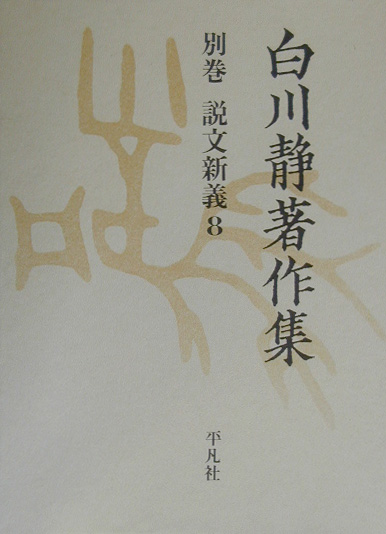 白川静著作集
別巻 説文新義8
平凡社